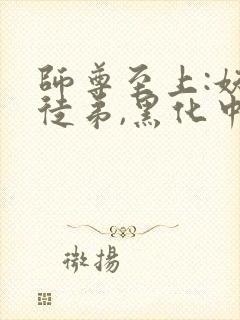 師尊至上:妖
徒弟,黑化中
微揚